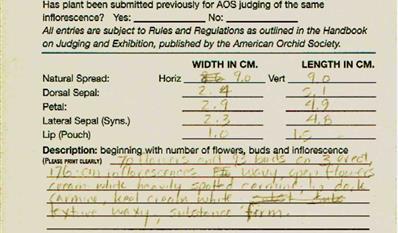 Has plant been submitted previously for AOS judging of the same
inflorescence? Yes: No:
All entries are subject to Rules and Regulations as outlined in the Handbook
on Judging and Exhibition, published by the American Orchid Society.
WIDTH IN CM. LENGTH IN CM.
Natural Spread: Horiz 9.0 Vert 9.0
Dorsal Sepal: 2.4 5.1
Petal: 2.9 4.9
Lateral Sepal (Syns.) 2.3 4.8
Lip (Pouch) 1.0 1.5
Description: beginning with number of flowers, buds and inflorescence
(PLEASE PRINT CLEARLY) 70 flowers and 93 buds on 3 erect,
176-cm inflorescences wavy, open flowers
cream white heavily spotted carmine, lip dark
carmine, keel cream white
texture waxy, substance firm.